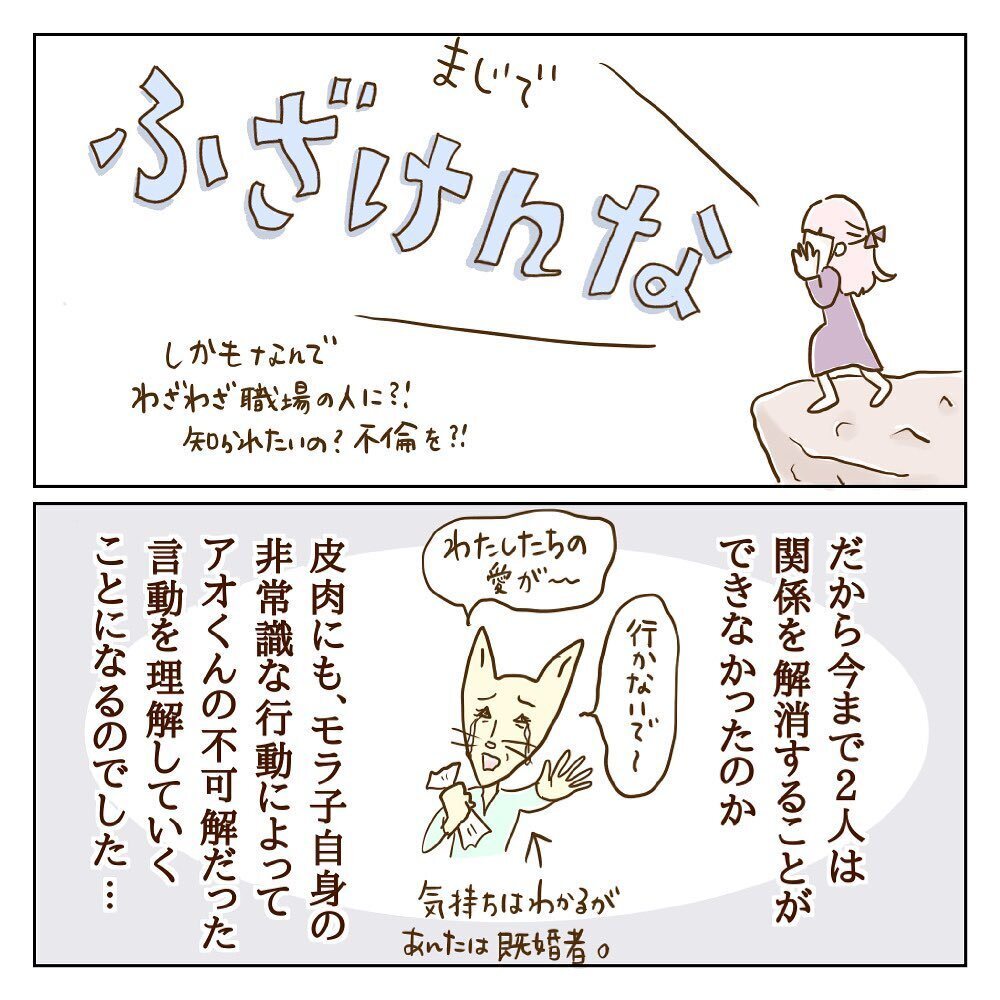 まじで
ふざけんな
しかもなんで
わざわざ職場の人に?!
知られたいの?不倫を?!
だから今まで2人は
関係を解消することが
できなかったのか
行かないで〜
わたしたちの
愛が〜
気持ちはわかるが
あんたは既婚者。
皮肉にも、モラ子自身の
非常識な行動によって
アオくんの不可解だった
言動を理解していく
ことになるのでした…